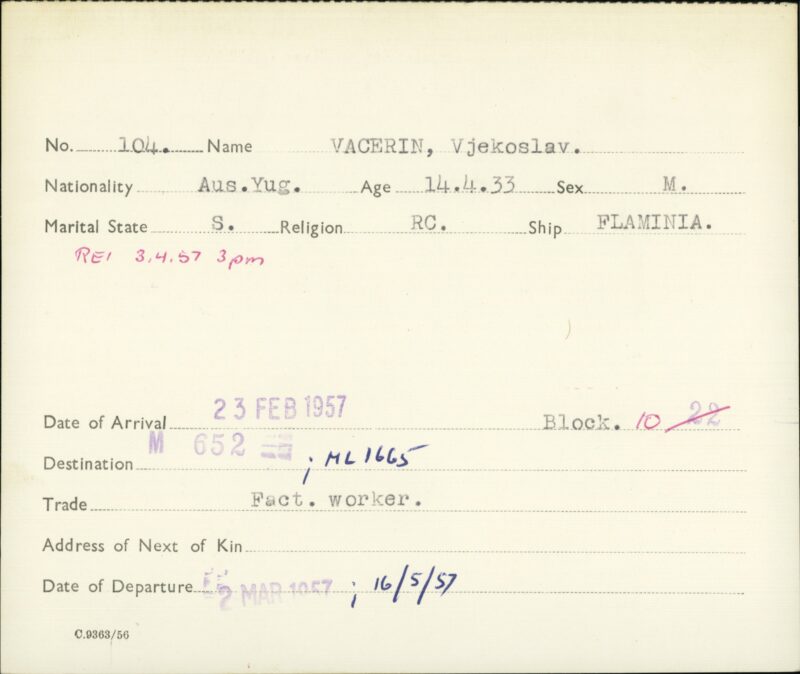 No. 104. Name VACERIN, Vjekoslav.
Nationality Aus.Yug. Age 14.4.33 Sex M.
Marital State S. Religion RC. Ship FLAMINIA.
REI 3.4.57 3pm
Date of Arrival 23 FEB 1957 Block. 10 22
M 652
Destination ; ML1665
Trade Fact. worker.
Address of Next of Kin
Date of Departure 2 MAR 1957 ; 16/5/57
C.9363/56